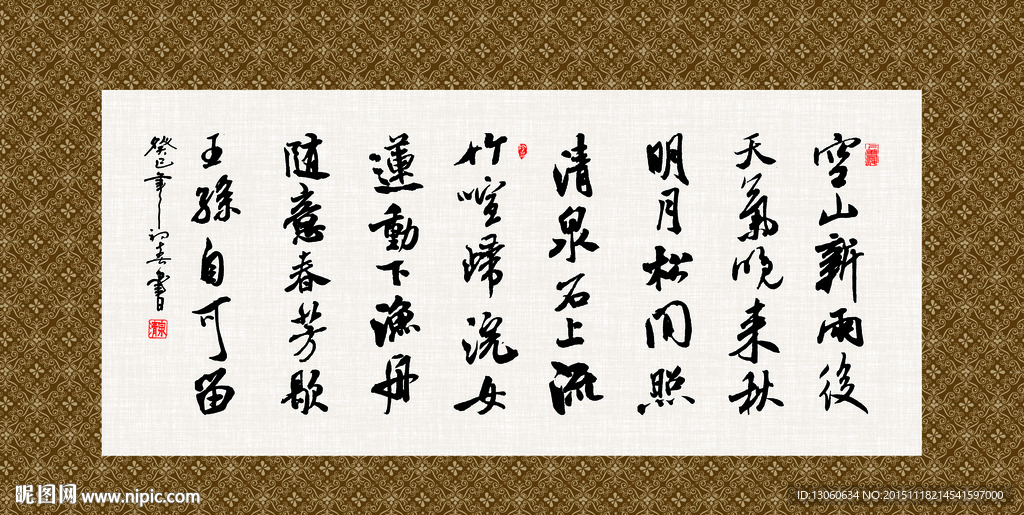 空山新雨後
天氣晚来秋
明月松間照
清泉石上流
竹喧歸浣女
蓮動下漁舟
随意春芳歇
王孫自可留
癸巳年初春書
昵图网 www.nipic.com
ID:13060634 NO:20151118214541597000